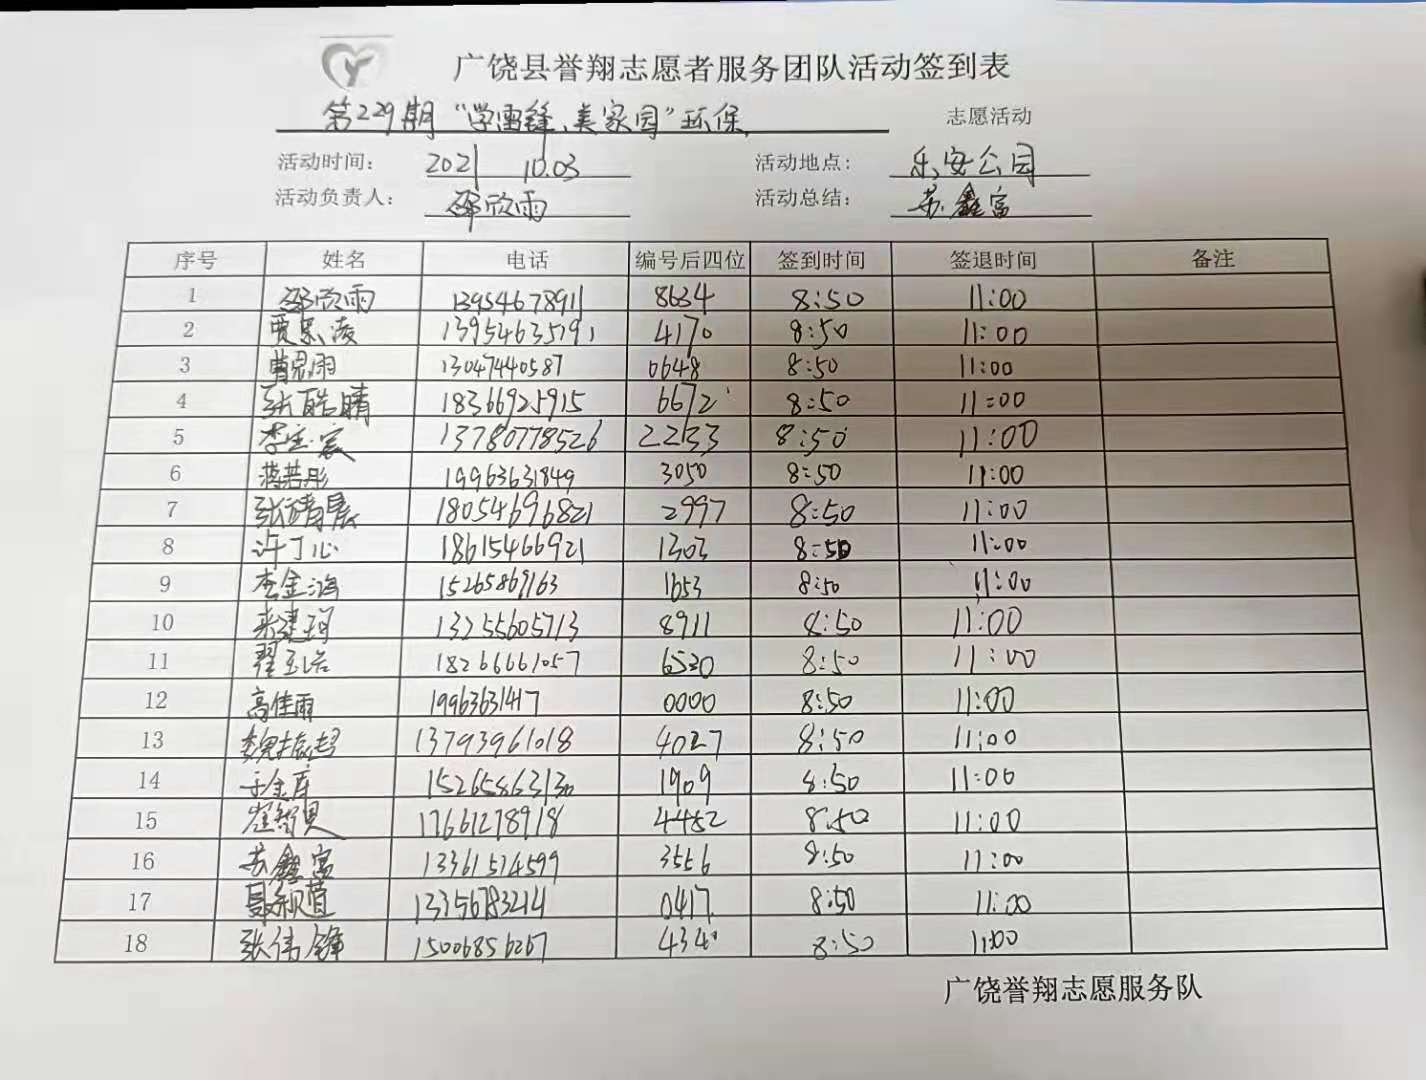 广饶县誉翔志愿者服务团队活动签到表
第229期“学雷锋、美家园”环保 志愿活动
活动时间： 2021 10.03 活动地点： 乐安公园
活动负责人： 邵欣雨 活动总结： 苏鑫富
序号 姓名 电话 编号后四位 签到时间 签退时间 备注
1 邵欣雨 13954678911 8634 8:50 11:00
2 贾思凌 13954635191 4170 8:50 11:00
3 曹恩雨 13047440587 0648 8:50 11:00
4 张皓晴 18366925915 6672 8:50 11:00
5 李宝宸 13780778526 2233 8:50 11:00
6 蒋若彤 19963631849 3050 8:50 11:00
7 张靖晨 18054696821 2997 8:50 11:00
8 许丁心 18615466921 1303 8:50 11:00
9 李金鸿 15265869163 1653 8:50 11:00
10 建珂 13255605713 8911 8:50 11:00
11 翟玉 18266661057 6530 8:50 11:00
12 高佳雨 19963631417 0000 8:50 11:00
13 魏振超 13793961018 4027 8:50 11:00
14 于金库 15265863130 1909 8:50 11:00
15 崔 17661278918 4452 8:50 11:00
16 苏鑫富 13361514599 3556 8:50 11:00
17 13356783214 0417 8:50 11:00
18 张伟锋 15006856267 4340 8:50 11:00
广饶誉翔志愿服务队